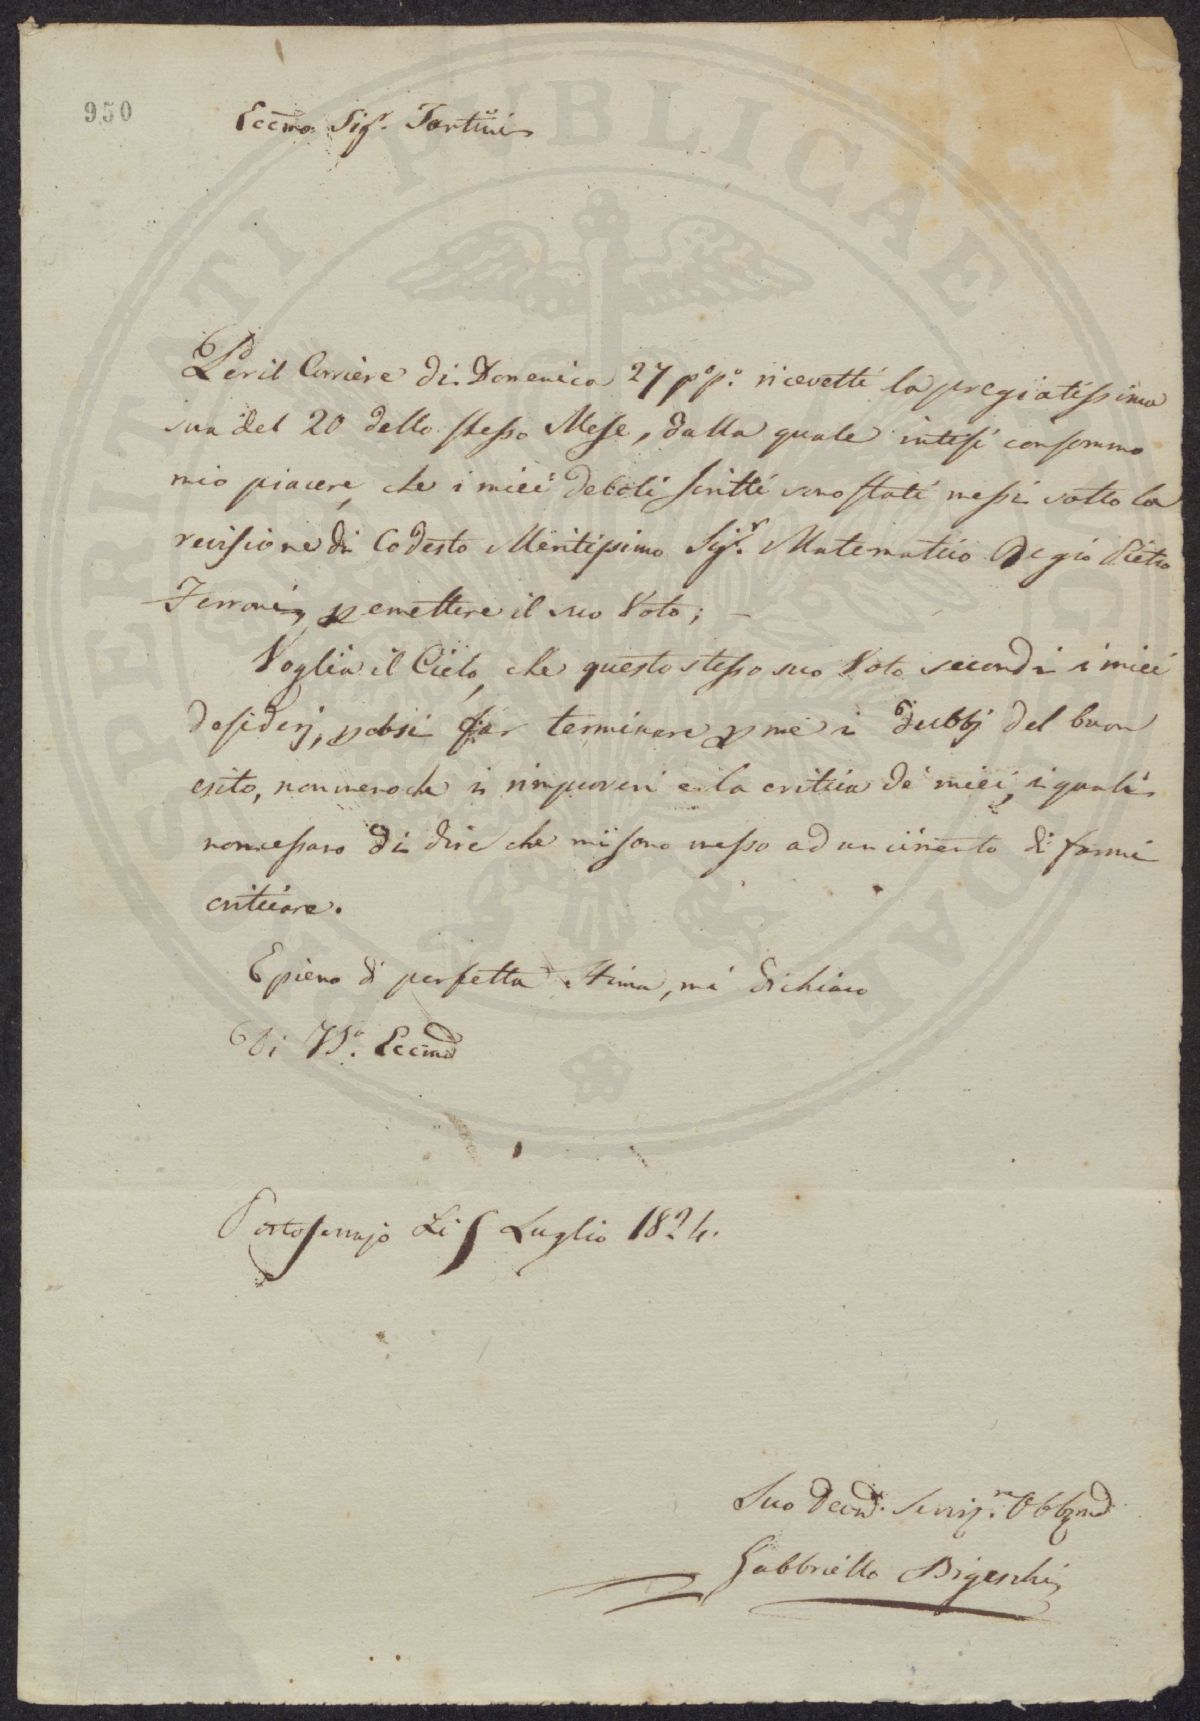 950
Eccmo. Sigr. Tartini
Per il Corriere di Domenica 27 p.o p.o ricevetti la pregiatissima
sua del 20 dello stesso Mese, dalla quale intesi con sommo
mio piacere, che i miei deboli scritti sono stati messi sotto la
revisione di Codesto Meritissimo Sigr. Matematico Regio Pietro
Ferroni, p emettere il suo Voto; -
Voglia il Cielo, che questo stesso suo Voto secondi i miei
desiderj, e così far terminare p me i dubbj del buon
esito, non meno che i rimproveri e la critica de' miei, i quali
non cessano di dire che mi sono messo ad un cimento di farmi
criticare.
E pieno di perfetta stima, mi dichiaro
Di VS.a Eccma
Portoferrajo Li 5 Luglio 1824.
Suo Obblmo
Gabbriello Bigeschi
PUBLICAE